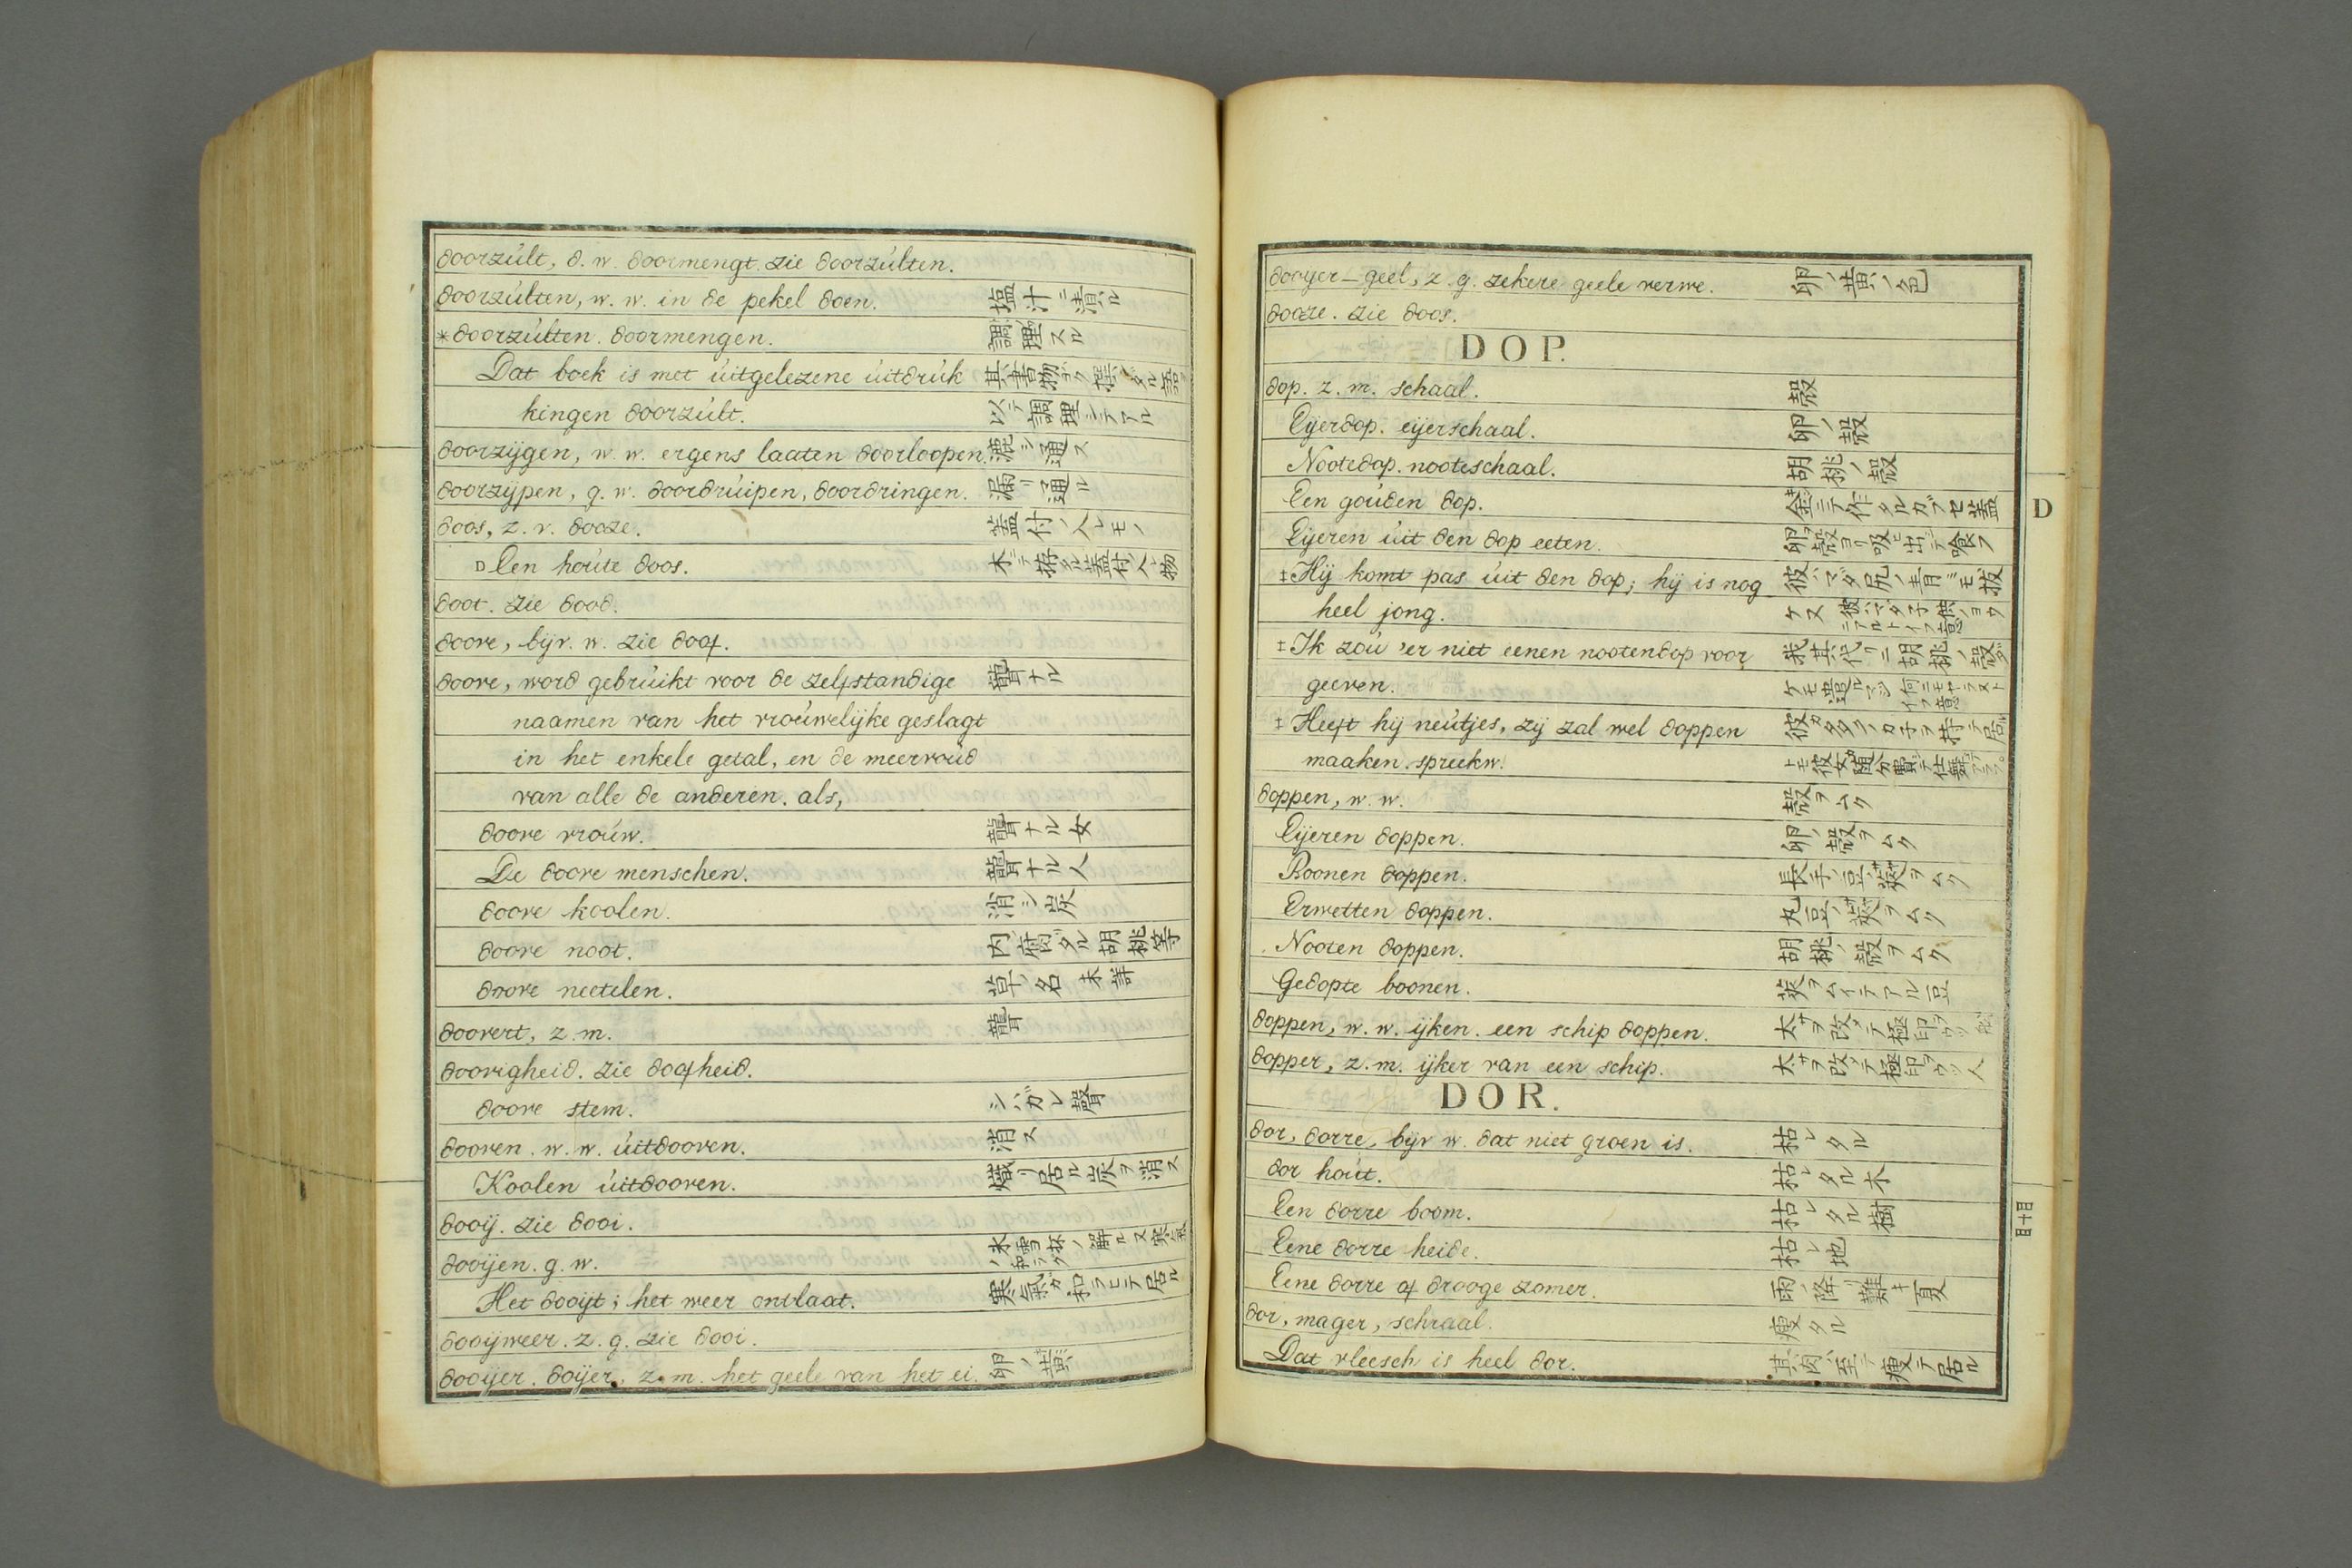 doorzúlt, d. w. doormengt. zie doorzúlten.
doorzúlten, w. w. in de pekel doen. 塩汁ニ漬ル
*doorzúlten. doormengen. 調理スル
Dat boek is met úitgelezene úitdrúk 其書物ハ
kingen doorzúlt. 以テ調理シテアル
doorzijgen, w. w. ergens laaten doorloopen. 漉シ通ス
doorzijpen, g. w. doordrúipen, doordringen. 漏リ通ル
doos, z. v. dooze. 蓋付ノ入レモノ
D Een hoúte doos. 木ニテ拵タル蓋付ノ入レ物
doot. zie dood.
doove, bijv. w. zie doof.
doove, word gebrúikt voor de zelfstandige 聾ナル
naamen van het vroúwelijke geslagt
in het enkele getal, en de meervoúd
van alle de anderen. als,
doove vroúw. 聾ナル女
De doove menschen. 聾ナル人
doove koolen. 消シ炭
doove noot. 内ノ腐タル胡桃等
doove neetelen. 草ノ名 未詳
doovert, z. m. 聾
doovigheid. zie doofheid.
doove stem. シハガレ聲
dooven. w. w. úitdooven. 消ス
Koolen úitdooven. 熾リ居ル炭ヲ消ス
dooij. zie dooi.
dooijen. g. w. 氷雪抔ノ解ル又寒氣ノ和ラグ
Het dooijt; het weer ontlaat. 寒氣ガ和ラヒテ居ル
dooijweer. z. g. zie dooi.
dooijer. doijer, z. m. het geele van het ei. 卵ノ黄ミ
dooyer-geel, z. g. zekere geele verwe. 卵ノ黄ミノ色
dooze. zie doos.
DOP.
dop. z. m. schaal. 殻
Eijerdop. eijerschaal. 卵ノ殻
Nootedop. nooteschaal. 胡桃ノ殻
Een goúden dop. 金ニテ作タルカブセ蓋
Eijeren úit den dop eeten. 卵ヲ殻ヨリ吸ヒ出シテ喰フ
‡Hij komt pas úit den dop; hij is nog 彼ハマダ尻ノ青ミモ抜
heel jong. ケヌ 彼ハマダ子供ノヨウニアルトイフ意
‡Ik zoú 'er niet eenen nootendop voor 我其代リニ胡桃ノ殻ダ
geeven. ケモ遣ルマジ 何ニモヤラヌトイフ意
‡Heeft hij neútjes, zij zal wel doppen
maaken. spreekw.
doppen, w. w. 殻ヲムク
Eijeren doppen. 卵ノ殻ヲムク
Boonen doppen. 長手ノ豆ノ莢ヲムク
Erwetten doppen. 丸豆ノ莢ヲムク
Nooten doppen. 胡桃ノ殻ヲムク
Gedopte boonen. 莢ヲムイテアル豆
doppen, w. w. ijken. een schip doppen. 大サヲ改メテ極印ヲウツ
dopper, z. m. ijker van een schip. 大サヲ改メテ極印ヲウツ人
DOR.
dor, dorre, bijv w. dat niet groen is. 枯レタル
dor hoút. 枯レタル木
Een dorre boom. 枯レタル樹
Eene dorre heide. 枯レ地
Eene dorre of drooge zomer. 雨ノ降リ難キ夏
dor, mager, schraal. 瘦タル
Dat vleesch is heel dor. 其肉ハ至テ瘦テ居ル
D